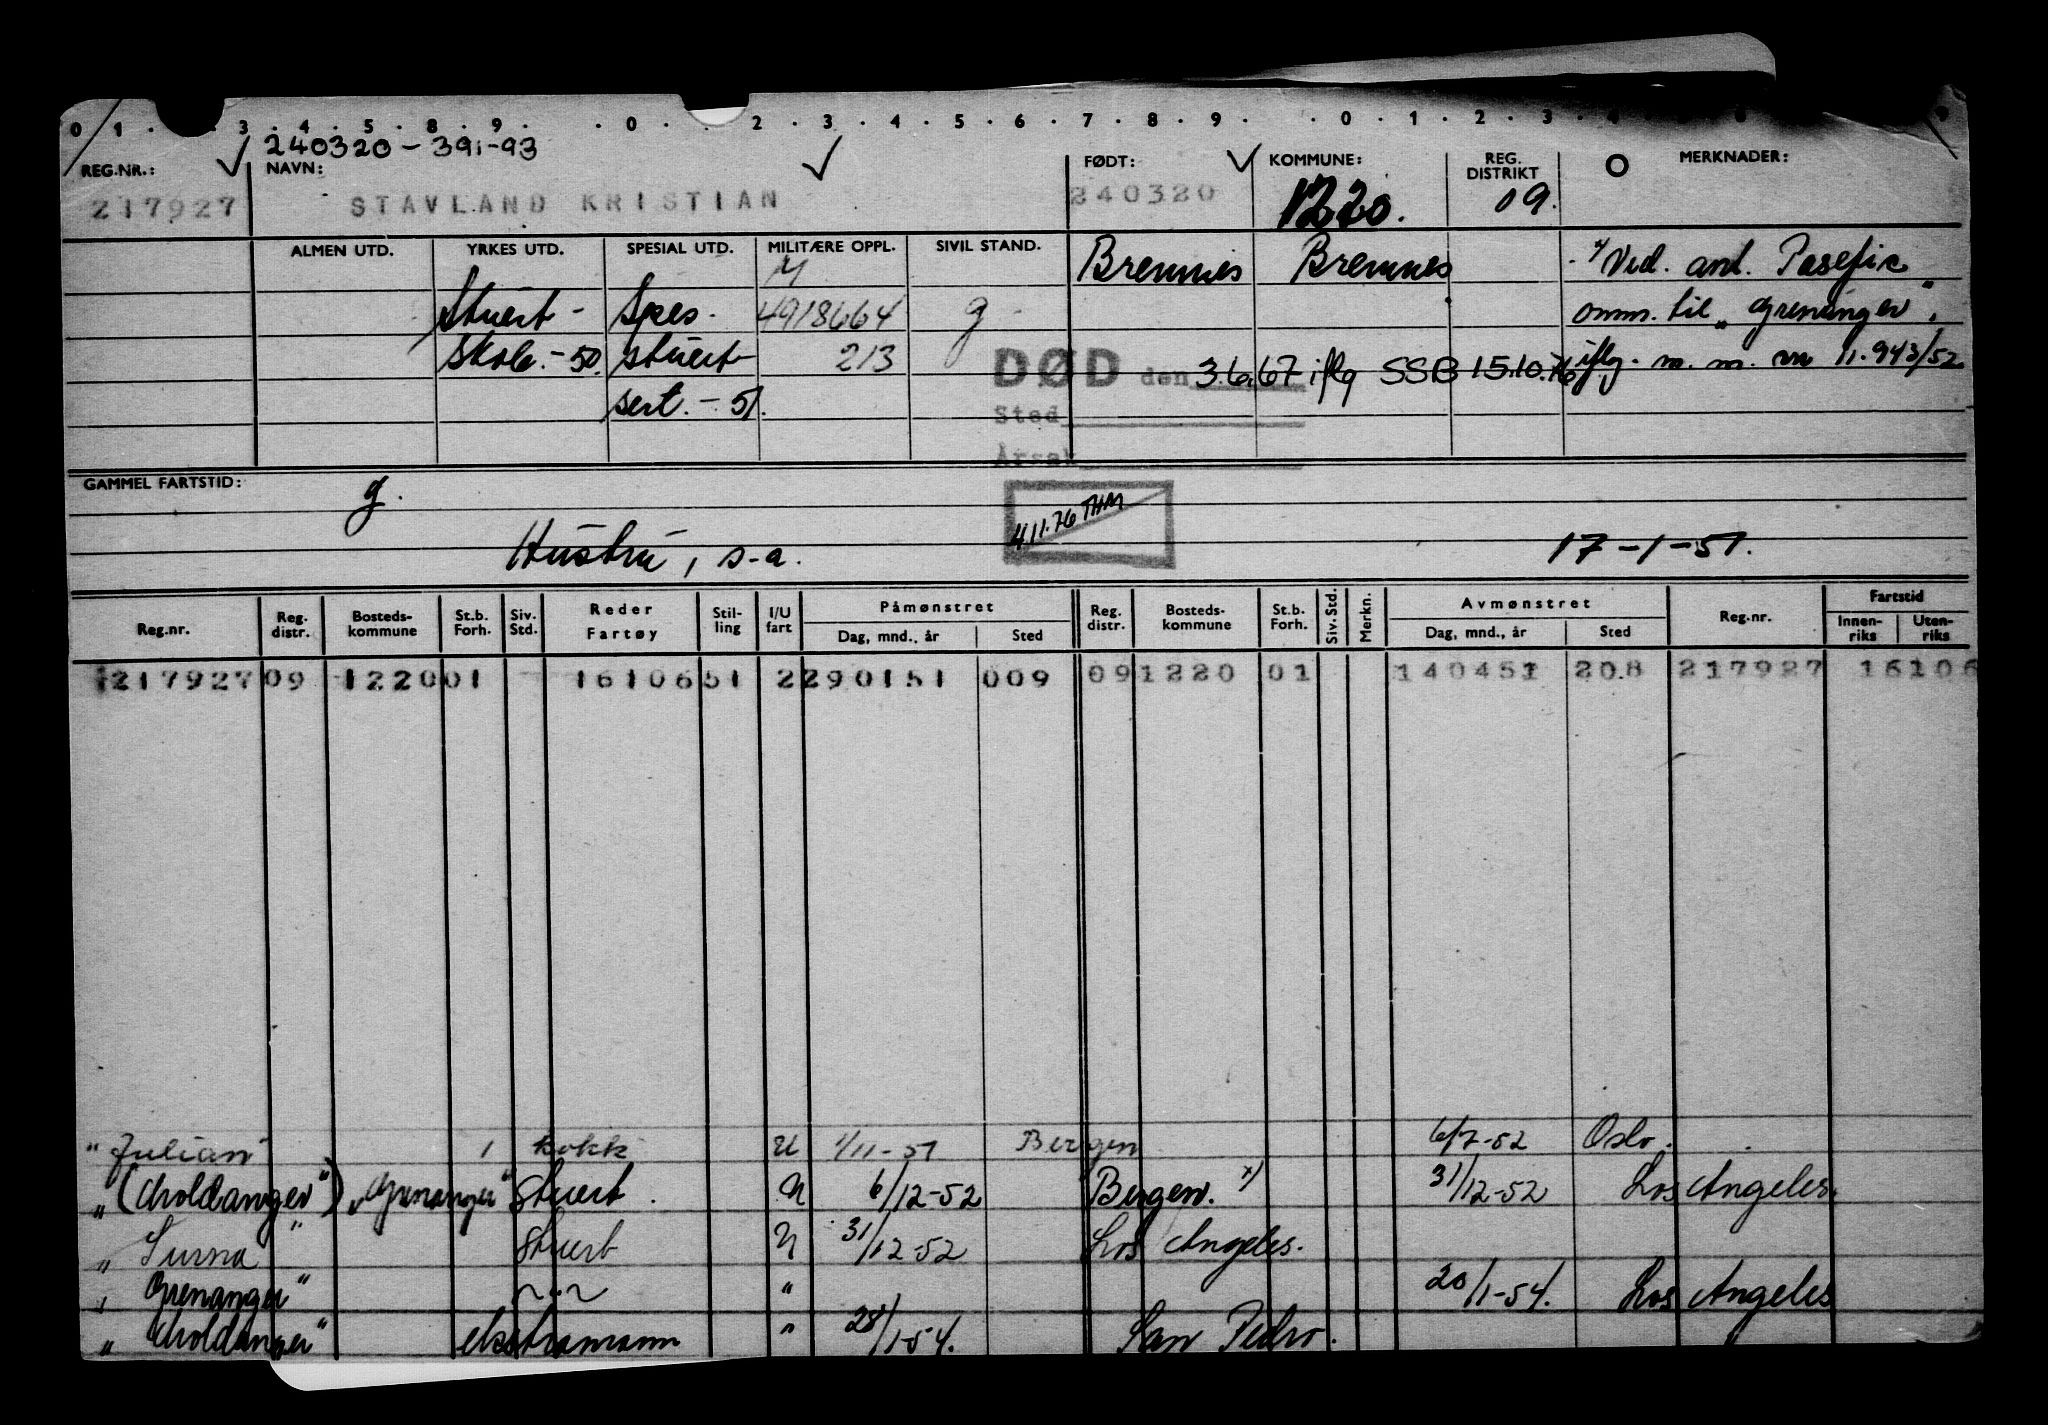 0 1 . . 3 . 4 . 5 . 8 . 9 . . 0 . . 2 . 3 . 4 . 5 . 6 . 7 . 8 . 9 . . 0 . 1 . 2 . 3 . 4
240320-391-93
REG.NR.: NAVN: FØDT: KOMMUNE: REG. DISTRIKT MERKNADER:
217927 STAVLAND KRISTIAN 240320 1220. 09.
ALMEN UTD. YRKES UTD. SPESIAL UTD. MILITÆRE OPPL. SIVIL STAND. Bremnes Bremnes Ved. ant. Pasefic
Stuert- Spes. 4918664 g omm. til "Grenanger".
Skole.-50. stuert 213 DØD den 3.6.67 iflg SSB 15.10.76 iflg. m.m. nr 11.943/52
sert.-51. Sted
Årsak
GAMMEL FARTSTID: g.
4.11.76 THM
Hustru, s.a. 17-1-51.
Reg.nr. Reg. distr. Bosteds-kommune St.b. Forh. Siv. Std. Reder Fartøy Stil-ling I/U fart Påmønstret Dag, mnd., år Sted Reg. distr. Bosteds-kommune St.b. Forh. Siv. Std. Merkn. Avmønstret Dag, mnd., år Sted Reg.nr. Fartstid Innen-riks Uten-riks
217927 09 1220 01 16106 51 2 290151 009 09 1220 01 140451 208 217927 16106
"Julian" 1 kokk U 1/11-51 Bergen 6/7-52 Oslo.
"(Moldanger") "Grenanger" Stuert. U 6/12-52 Bergen. x) 31/12-52 Los Angeles.
"Surna" Stuert U 31/12-52 Los Angeles.
"Grenanger" ~"~ " 20/1-54. Los Angeles
"Moldanger" ekstramann " 28/1-54. San Pedro.